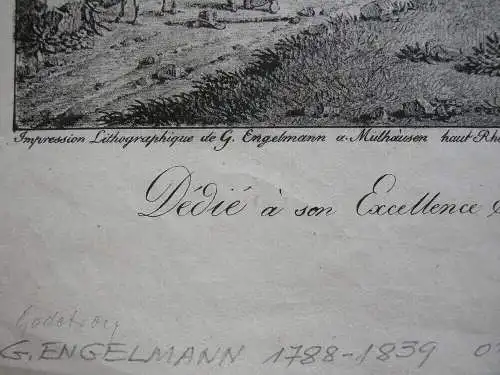 Impression Lithographique de G. Engelmann a. Mülhausen haut Rh
Dédié à son Excellence
G. ENGELMANN 1788-1839